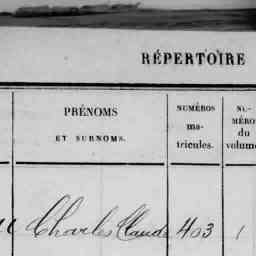 RÉPERTOIRE
PRÉNOMS
ET SURNOMS.
NUMÉROS
ma-
tricules.
NU-
MÉRO
du
volume
Charles Claude 403 1